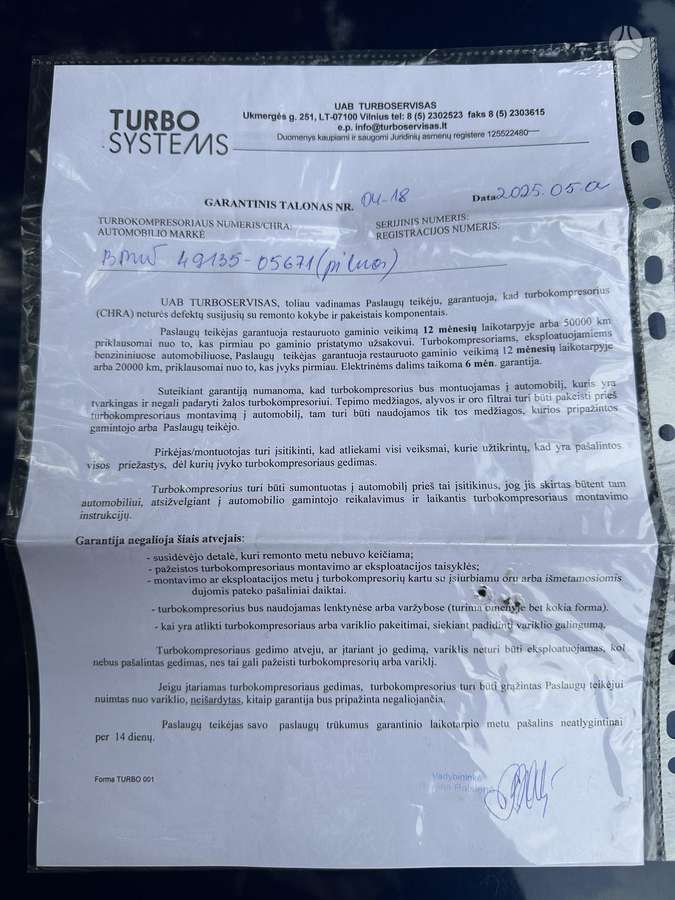 TURBO
SYSTEMS
UAB TURBOSERVISAS
Ukmergės g. 251, LT-07100 Vilnius tel: 8 (5) 2302523 faks 8 (5) 2303615
e.p. info@turboservisas.lt
Duomenys kaupiami ir saugomi Juridinių asmenų registere 125522480
GARANTINIS TALONAS NR. 04-18 Data 2025.05.
TURBOKOMPRESORIAUS NUMERIS/CHRA:
AUTOMOBILIO MARKĖ
SERIJINIS NUMERIS:
REGISTRACIJOS NUMERIS:
BMW 49135-05671 (pilnas)
UAB TURBOSERVISAS, toliau vadinamas Paslaugų teikėju, garantuoja, kad turbokompresorius
(CHRA) neturės defektų susijusių su remonto kokybe ir pakeistais komponentais.
Paslaugų teikėjas garantuoja restauruoto gaminio veikimą 12 mėnesių laikotarpyje arba 50000 km
priklausomai nuo to, kas pirmiau po gaminio pristatymo užsakovui. Turbokompresoriams, eksploatuojamiems
benzininiuose automobiliuose, Paslaugų teikėjas garantuoja restauruoto gaminio veikimą 12 mėnesių laikotarpyje
arba 20000 km, priklausomai nuo to, kas įvyks pirmiau. Elektrinėms dalims taikoma 6 mėn. garantija.
Suteikiant garantiją numanoma, kad turbokompresorius bus montuojamas į automobilį, kuris yra
tvarkingas ir negali padaryti žalos turbokompresoriui. Tepimo medžiagos, alyvos ir oro filtrai turi būti pakeisti prieš
turbokompresoriaus montavimą į automobilį, tam turi būti naudojamos tik tos medžiagos, kurios pripažintos
gamintojo arba Paslaugų teikėjo.
Pirkėjas/montuotojas turi įsitikinti, kad atliekami visi veiksmai, kurie užtikrintų, kad yra pašalintos
visos priežastys, dėl kurių įvyko turbokompresoriaus gedimas.
Turbokompresorius turi būti sumontuotas į automobilį prieš tai įsitikinus, jog jis skirtas būtent tam
automobiliui, atsižvelgiant į automobilio gamintojo reikalavimus ir laikantis turbokompresoriaus montavimo
instrukcijų.
Garantija negalioja šiais atvejais:
- susidėvėjo detalė, kuri remonto metu nebuvo keičiama;
- pažeistos turbokompresoriaus montavimo ar eksploatacijos taisyklės;
- montavimo ar eksploatacijos metu į turbokompresorių kartu su įsiurbiamu oru arba išmetamosiomis
dujomis pateko pašaliniai daiktai.
- turbokompresorius bus naudojamas lenktynėse arba varžybose (turima omenyje bet kokia forma).
- kai yra atlikti turbokompresoriaus arba variklio pakeitimai, siekiant padidinti variklio galingumą.
Turbokompresoriaus gedimo atveju, ar įtariant jo gedimą, variklis neturi būti eksploatuojamas, kol
nebus pašalintas gedimas, nes tai gali pažeisti turbokompresorių arba variklį.
Jeigu įtariamas turbokompresoriaus gedimas, turbokompresorius turi būti grąžintas Paslaugų teikėjui
nuimtas nuo variklio, neišardytas, kitaip garantija bus pripažinta negaliojančia.
Paslaugų teikėjas savo paslaugų trūkumus garantinio laikotarpio metu pašalins neatlygintinai
per 14 dienų.
Forma TURBO 001
Vadybininkė